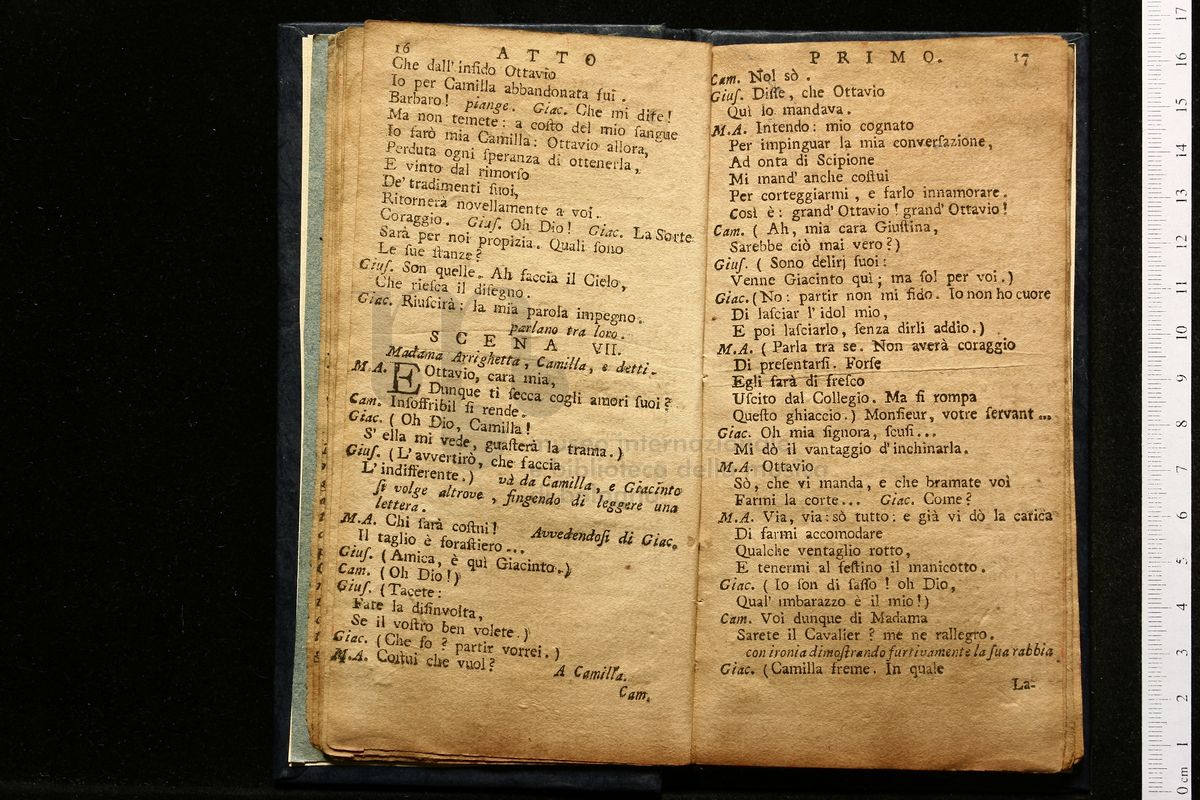 16 ATTO
Che dall' infido Ottavio
Io per Camilla abbandonata fui.
Barbaro! piange. Giac. Che mi dite!
Ma non temete: a costo del mio sangue
Io farò mia Camilla: Ottavio allora,
Perduta ogni speranza di ottenerla,
E vinto dal rimorso
De' tradimenti suoi,
Ritornerà novellamente a voi.
Coraggio. Gius. Oh Dio! Giac. La Sorte
Sarà per noi propizia. Quali sono
Le sue stanze?
Gius. Son quelle. Ah faccia il Cielo,
Che riesca il disegno.
Giac. Riuscirà: la mia parola impegno.
parlano tra loro.
SCENA VII.
Madama Arrighetta, Camilla, e detti.
M.A. E Ottavio, cara mia,
Dunque ti secca cogli amori suoi?
Cam. Insoffribil si rende.
Giac. (Oh Dio, Camilla!
S' ella mi vede, guasterà la trama.)
Gius. (L'avvertirò, che faccia
L'indifferente.) và da Camilla, e Giacinto
si volge altrove, fingendo di leggere una
lettera.
M.A. Chi sarà costui! Avvedendosi di Giac.
Il taglio è forastiero...
Gius. (Amica, è quì Giacinto.)
Cam. (Oh Dio!)
Gius. (Tacete:
Fate la disinvolta,
Se il vostro ben volete.)
Giac. (Che fo? partir vorrei.)
M.A. Costui che vuol? A Camilla.
Cam.
PRIMO. 17
Cam. Nol sò.
Gius. Disse, che Ottavio
Quì lo mandava.
M.A. Intendo: mio cognato
Per impinguar la mia conversazione,
Ad onta di Scipione
Mi mand' anche costui
Per corteggiarmi, e farlo innamorare.
Così è: grand' Ottavio! grand' Ottavio!
Cam. (Ah, mia cara Giustina,
Sarebbe ciò mai vero?)
Gius. (Sono delirj suoi:
Venne Giacinto quì; ma sol per voi.)
Giac. (No: partir non mi fido. Io non ho cuore
Di lasciar l'idol mio,
E poi lasciarlo, senza dirli addio.)
M.A. (Parla tra se. Non averà coraggio
Di presentarsi. Forse
Egli sarà di fresco
Uscito dal Collegio. Ma si rompa
Questo ghiaccio.) Monsieur, votre servant...
Giac. Oh mia signora, scusi...
Mi dò il vantaggio d'inchinarla.
M.A. Ottavio
Sò, che vi manda, e che bramate voi
Farmi la corte... Giac. Come?
M.A. Via, via: sò tutto: e già vi dò la carica
Di farmi accomodare
Qualche ventaglio rotto,
E tenermi al festino il manicotto.
Giac. (Io son di sasso! oh Dio,
Qual' imbarazzo è il mio!)
Cam. Voi dunque di Madama
Sarete il Cavalier? me ne rallegro.
con ironia dimostrando furtivamente la sua rabbia
Giac. (Camilla freme. In quale
La-